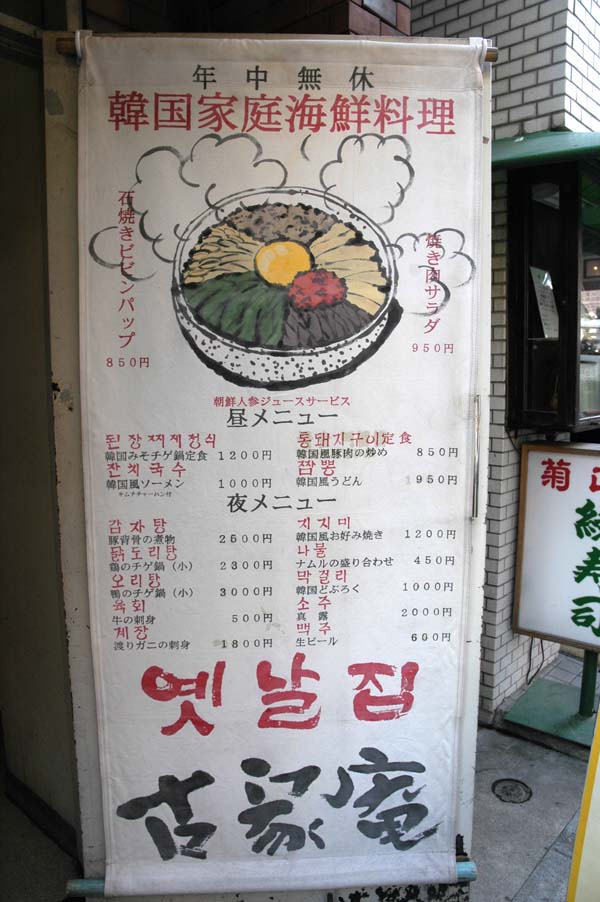 年中無休
韓国家庭海鮮料理
石焼きビビンパップ
850円
焼き肉サラダ
950円
朝鮮人参ジュースサービス
昼メニュー
된장찌게정식
韓国みそチゲ鍋定食 1200円
잔치국수
韓国風ソーメン 1000円
キムチチャーハン付
통돼지구이定食
韓国風豚肉の炒め 850円
짬뽕
韓国風うどん 950円
夜メニュー
감자탕
豚背骨の煮物 2500円
닭도리탕
鶏のチゲ鍋（小） 2300円
오리탕
鴨のチゲ鍋（小） 3000円
육회
牛の刺身 500円
게장
渡りガニの刺身 1800円
지지미
韓国風お好み焼き 1200円
나물
ナムルの盛り合わせ 450円
막걸리
韓国どぶろく 1000円
소주
真露 2000円
맥주
生ビール 600円
옛날집
古家庵
菊
寿司